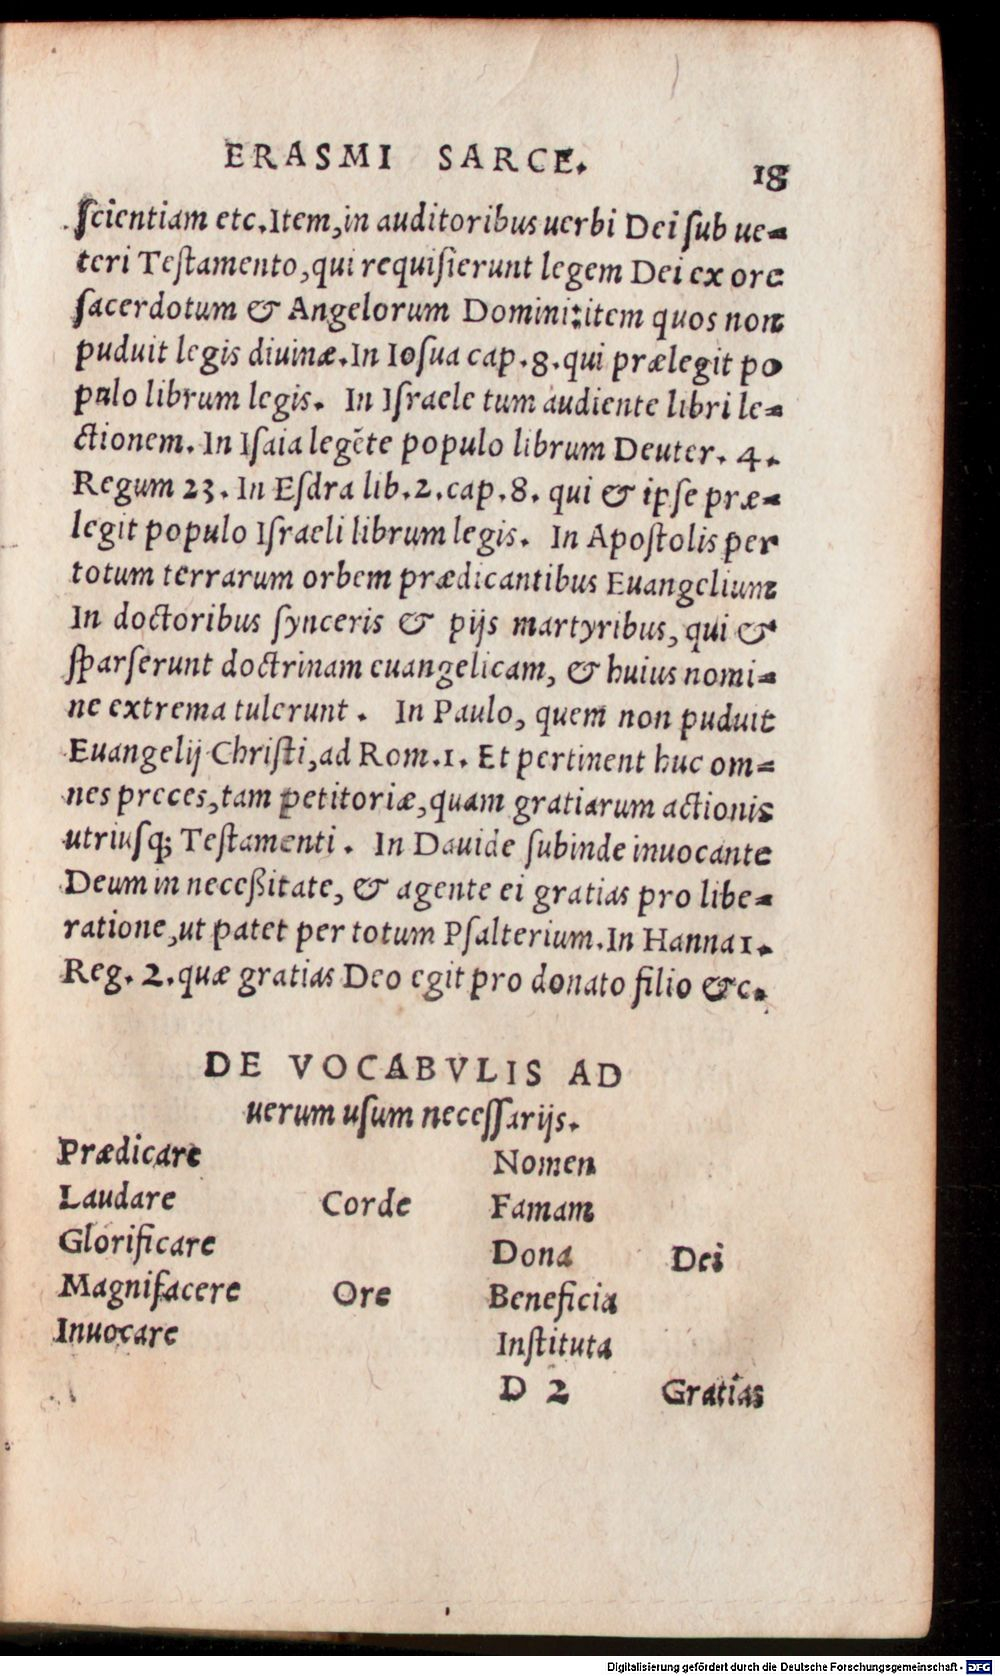 ERASMI SARCE.
18
ſcientiam etc. Item, in auditoribus uerbi Dei ſub ue-
teri Teſtamento, qui requiſierunt legem Dei ex ore
ſacerdotum & Angelorum Domini: item quos non
puduit legis diuinæ. In Ioſua cap. 8. qui prælegit po
pulo librum legis. In Iſraele tum audiente libri le-
ctionem. In Iſaia legẽte populo librum Deuter. 4.
Regum 23. In Eſdra lib. 2. cap. 8. qui & ipſe præ-
legit populo Iſraeli librum legis. In Apoſtolis per
totum terrarum orbem prædicantibus Euangelium
In doctoribus ſynceris & pijs martyribus, qui &
ſparſerunt doctrinam euangelicam, & huius nomi-
ne extrema tulerunt. In Paulo, quem non puduit
Euangelij Chriſti, ad Rom. 1. Et pertinent huc om-
nes preces, tam petitoriæ, quam gratiarum actionis
utriuſq; Teſtamenti. In Dauide ſubinde inuocante
Deum in neceßitate, & agente ei gratias pro libe-
ratione, ut patet per totum Pſalterium. In Hanna 1.
Reg. 2. quæ gratias Deo egit pro donato filio &c.
DE VOCABVLIS AD
uerum uſum neceſſarijs.
Prædicare Nomen
Laudare Corde Famam
Glorificare Dona Dei
Magnifacere Ore Beneficia
Inuocare Inſtituta
D 2 Gratias
Digitalisierung gefördert durch die Deutsche Forschungsgemeinschaft - DFG